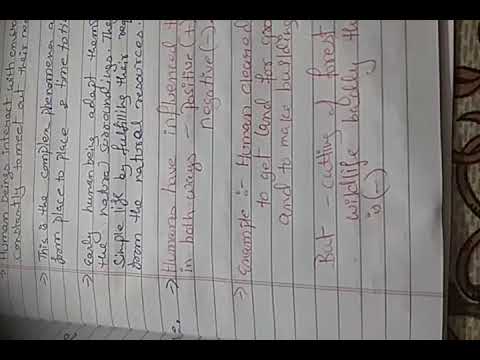 → Human beings interact with environ
constantly to meet out their ne
→ This is the complex phenomena a
from place to place & time to ti
→ Early human being adapt thems
the natural surroundings. The
Simple life by fulfilling their req
from the natural resources.
→ Humans have influenced t
in both ways - Positive (+)
negative (-).
→ Example :- Human cleared
to get land for gro
and to make building
But - cutting of forest
wildlife badly th
is (-)